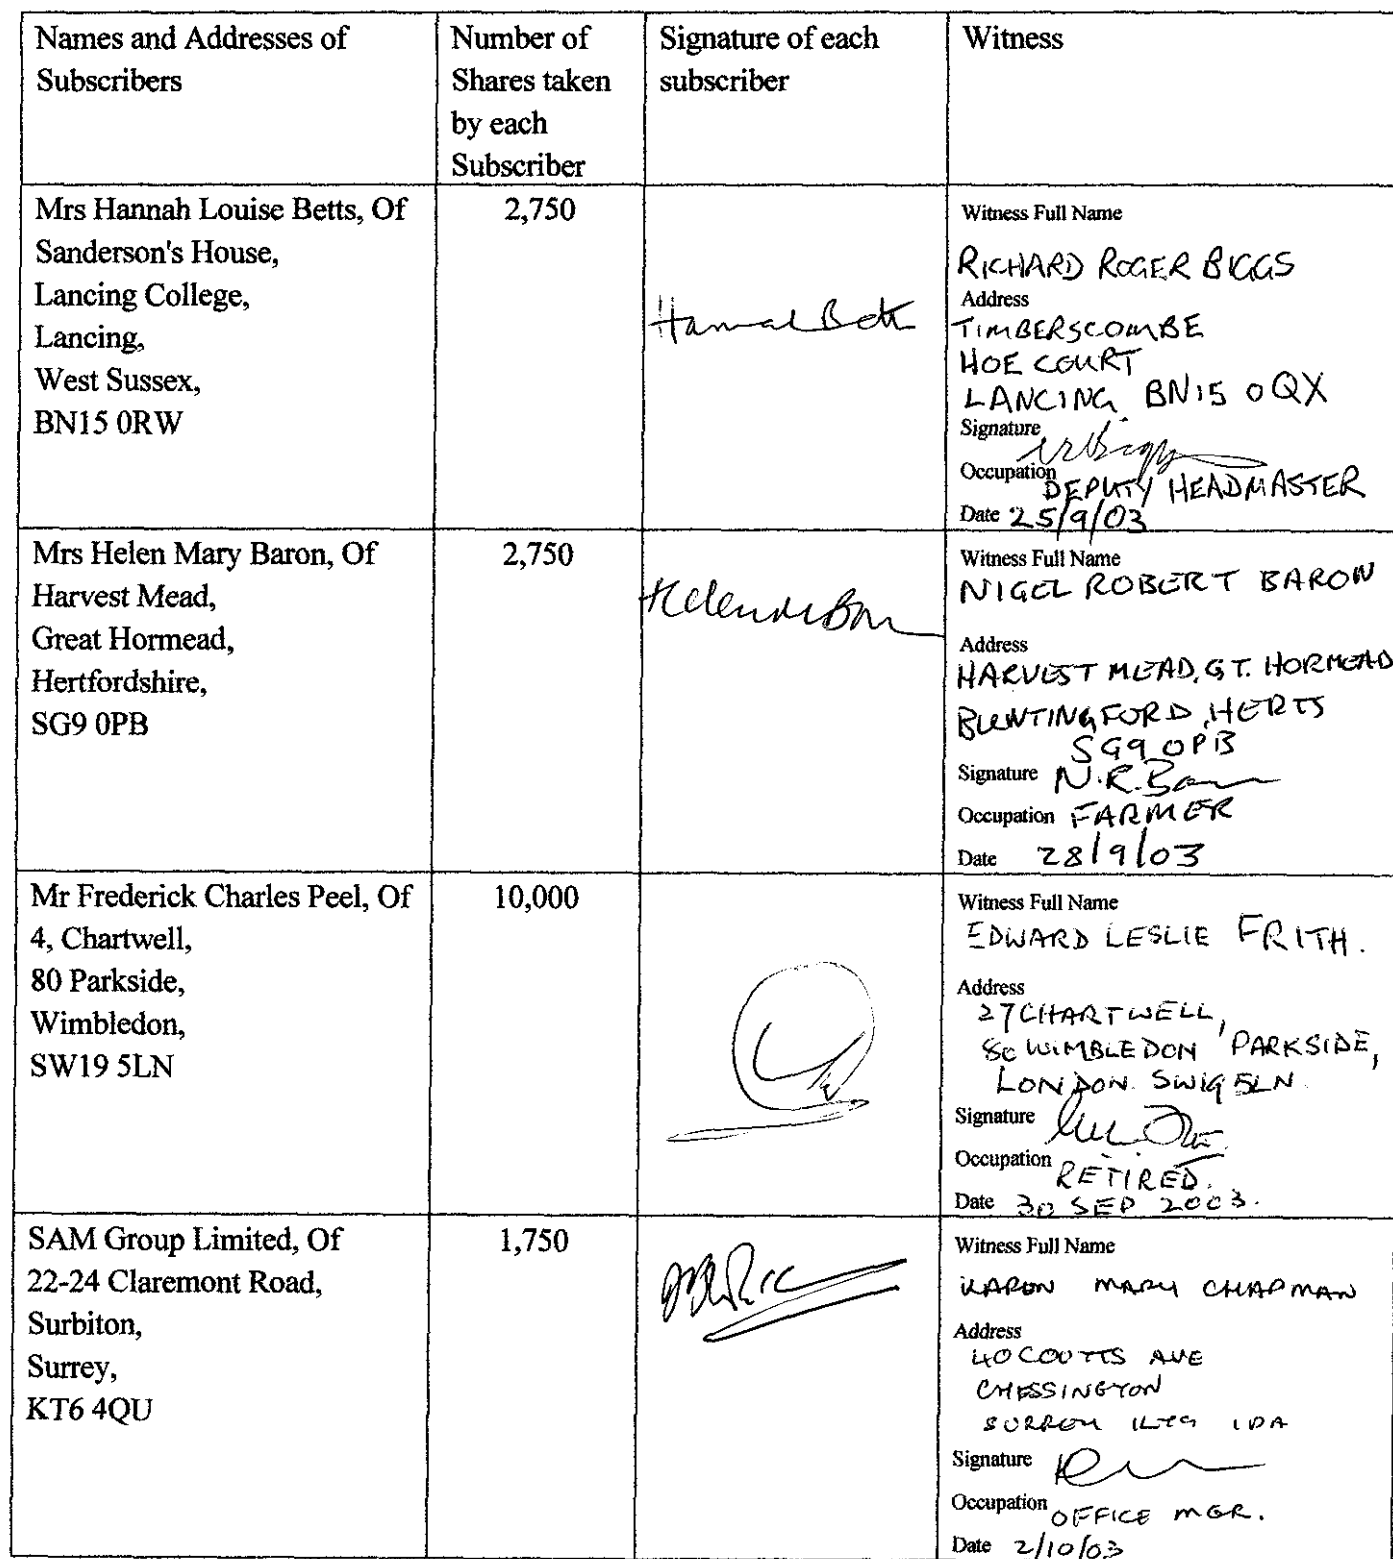 Names and Addresses of
Subscribers
Number of
Shares taken
by each
Subscriber
Signature of each
subscriber
Witness
Mrs Hannah Louise Betts, Of
Sanderson's House,
Lancing College,
Lancing,
West Sussex,
BN15 0RW
2,750
Witness Full Name
RICHARD ROGER BIGGS
Address
TIMBERSCOMBE
HOE COURT
LANCING BN15 0QX
Signature
Occupation
DEPUTY HEADMASTER
Date 25/9/03
Mrs Helen Mary Baron, Of
Harvest Mead,
Great Hormead,
Hertfordshire,
SG9 0PB
2,750
Witness Full Name
NIGEL ROBERT BARON
Address
HARVEST MEAD, GT. HORMEAD
BUNTINGFORD, HERTS
SG9 0PB
Signature N.R.
Occupation FARMER
Date 28/9/03
Mr Frederick Charles Peel, Of
4, Chartwell,
80 Parkside,
Wimbledon,
SW19 5LN
10,000
Witness Full Name
EDWARD LESLIE FRITH.
Address
27 CHARTWELL,
80 WIMBLEDON PARKSIDE,
LONDON. SW19 5LN.
Signature
Occupation RETIRED.
Date 30 SEP 2003.
SAM Group Limited, Of
22-24 Claremont Road,
Surbiton,
Surrey,
KT6 4QU
1,750
Witness Full Name
KARON MARY CHAPMAN
Address
40 COUTTS AVE
CHESSINGTON
SURREY KT9 1DA
Signature
Occupation OFFICE MGR.
Date 2/10/03